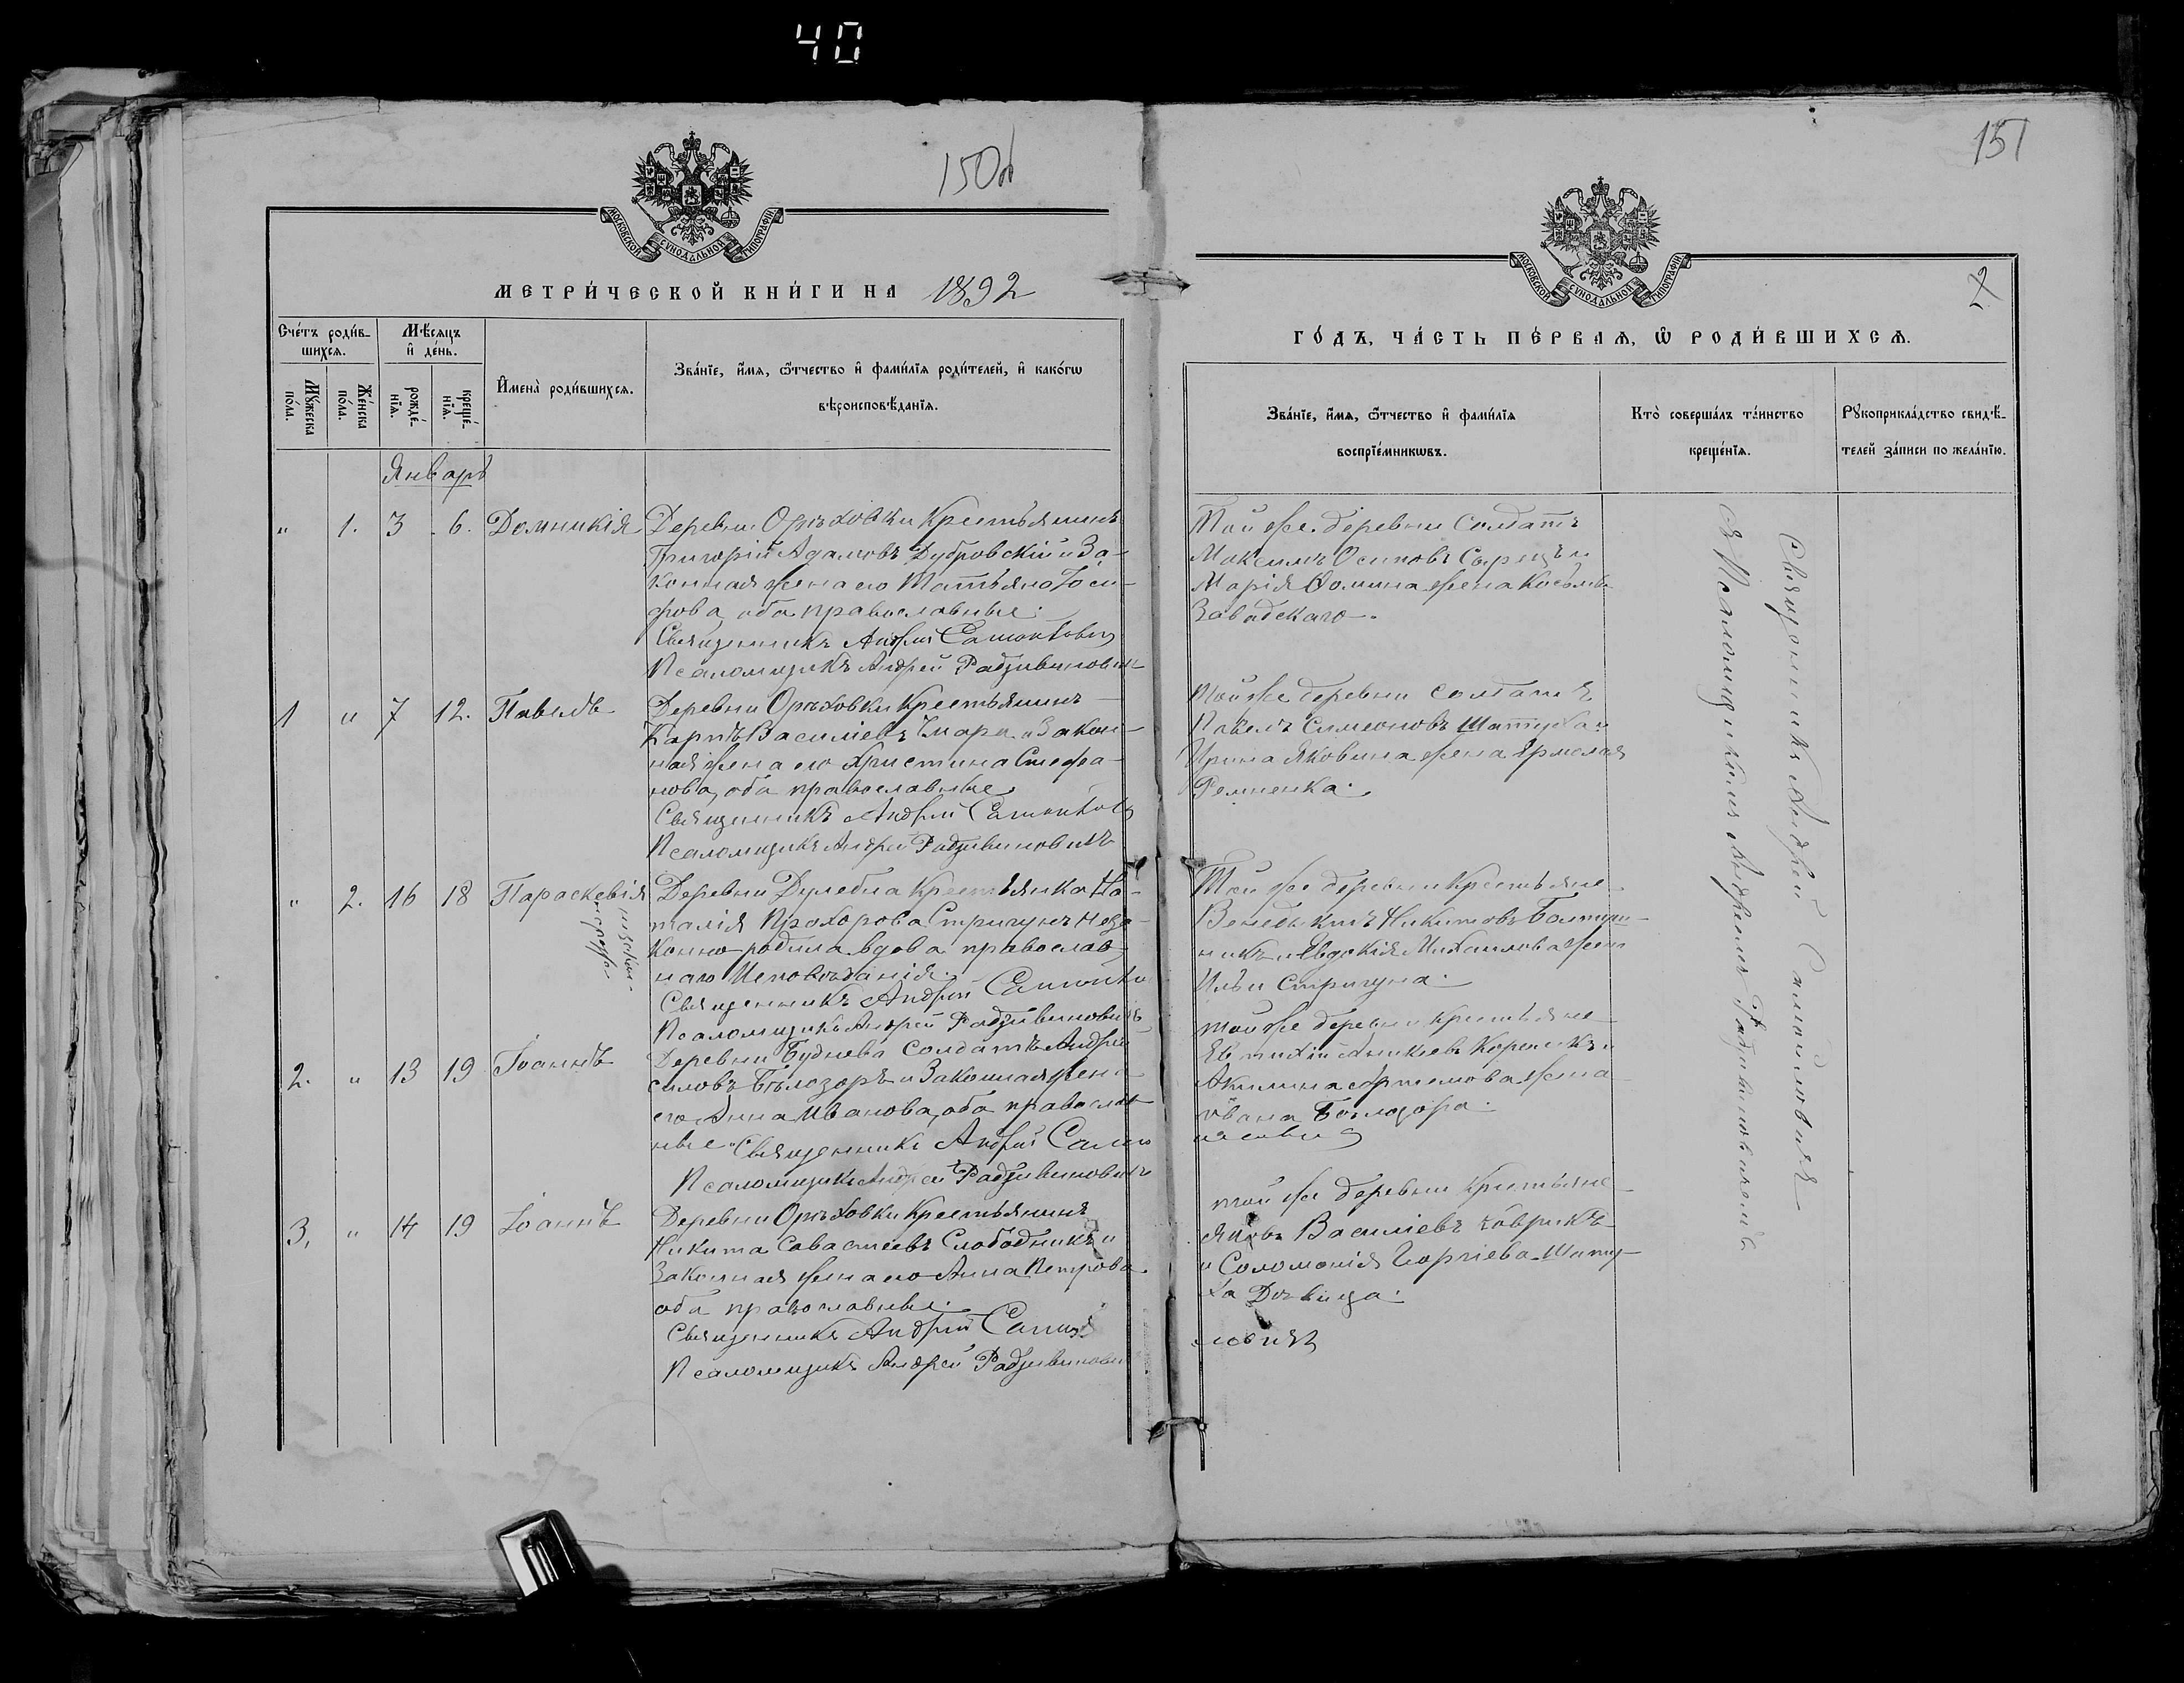 40
150об
151
2
МОСКОВСКОЙ СѴНОДАЛЬНОЙ ТИПОГРАФІИ
МЕТРИ́ЧЕСКОЙ КНИ́ГИ НА 1892
Сче́тъ роди́в-
шихсѧ.
Мѣ́сѧцъ
и҆ де́нь.
Мꙋ́жеска
по́ла.
Же́нска
по́ла.
рожде́-
нїѧ.
креще́-
нїѧ.
И҆мена̀ роди́вшихсѧ.
Зва́нїе, и҆́мѧ, ѻ҆́тчество и҆ фами́лїѧ роди́телей, и҆ како́гѡ
вѣроисповѣ́данїѧ.
Январь
" 1. 3 6. Домникія
Деревни Орѣховки Крестьянинъ
Григорій Адамовъ Дубровскій и За-
конная жена его Татьяна Іоси-
фова, оба православные.
Священникъ Андрей Самойлович
Псаломщикъ Андрей Радзивиновичъ
1 " 7 12. Павелъ
Деревни Орѣховки Крестьянинъ
Карпъ Василіевъ и Закон-
ная жена его Христина Стефа-
нова, оба православные
Священникъ Андрей Самойлов
Псаломщикъ Андрей Радзивиновичъ
" 2. 16 18 Параскевія
Деревни Дулебла Крестьянка На-
талія Прохорова Стригунъ Неза-
конно родила вдова православ-
наго Исповѣданія.
Священникъ Андрей Самойло
Псаломщикъ Андрей Радзивиновичъ
2. " 13 19 Іоаннъ
Деревни Буднева Солдатъ Андрей
Силовъ Бѣлозоръ и Законная жена
его Анна Иванова, оба православ
ные Священникъ Андрей Само
Псаломщикъ Андрей Радзивиновичъ
3. " 14 19 Іоаннъ
Деревни Орѣховки Крестьянинъ
Никита Саватеевъ Слободникъ и
Законная жена его Анна Петрова
оба православные.
Священникъ Андрей Самой
Псаломщикъ Андрей Радзивинови
МОСКОВСКОЙ СѴНОДАЛЬНОЙ ТИПОГРАФІИ
ГО́ДЪ, ЧА́СТЬ ПЕ́РВАѦ, Ѡ҆ РОДИ́ВШИХСѦ.
Зва́нїе, и҆́мѧ, ѻ҆́тчество и҆ фами́лїѧ
воспрїе́мникѡвъ.
Кто̀ соверша́лъ та́инство
креще́нїѧ.
Рꙋкоприкла́дство свидѣ́-
телей за́писи по жела́нїю.
Той же деревни Солдатъ
Максимъ Осиповъ и
Марія Фомина жена Косьмы
Завадскаго.
Той же деревни солдатъ
Павелъ Симеоновъ Шатуха и
Ирина Яковина жена Ермолая
Той же деревни Крестьяне
Венедыктъ Никитовъ
и Евдокія Михаилова жена
Ильи Стригуна.
той же деревни крестьяне
Евтихій и
Акилина Артемова жена
Ивана Бѣлозора.
той же деревни крестьяне
Яковъ Василіевъ Коврикъ
и Соломонія Георгіева Шату-
ха Дѣвица.
ловичъ
Священникъ Андрей Самойловичъ
съ Псаломщикомъ Андреемъ Радзивиновичемъ